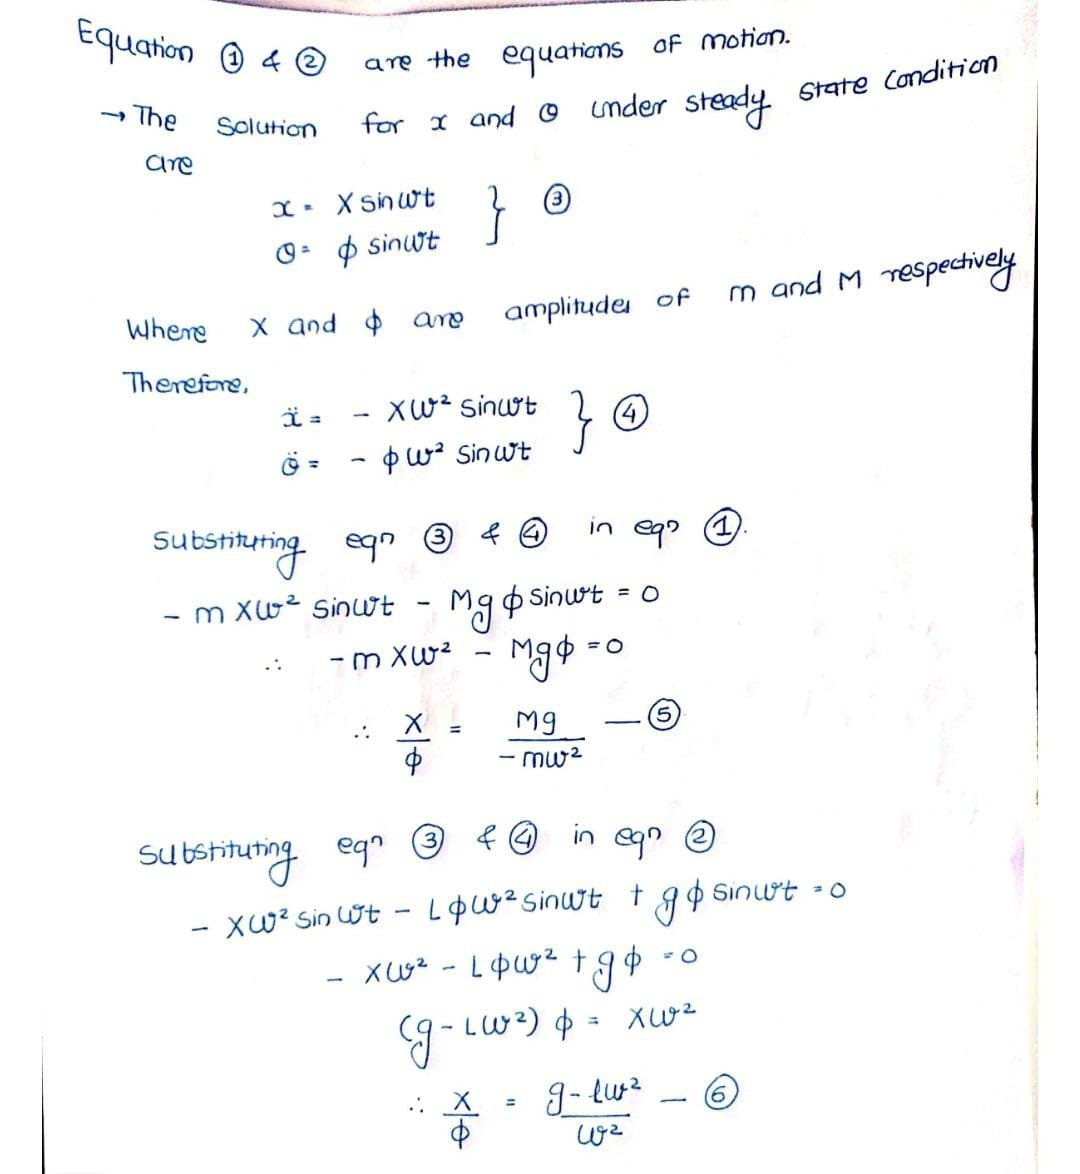 Equation ① & ② are the equations of motion.
→ The Solution for x and θ under steady state Condition
are
x = X sinωt } ③
θ = ϕ sinωt
Where X and ϕ are amplitudes of m and M respectively
Therefore,
ẍ = - Xω² sinωt } ④
θ̈ = - ϕω² sinωt
Substituting eqn ③ & ④ in eqn ①.
- m Xω² sinωt - Mgϕ sinωt = 0
∴ -m Xω² - Mgϕ = 0
∴ X/ϕ = Mg/-mω² — ⑤
Substituting eqn ③ & ④ in eqn ②
- Xω² sinωt - Lϕω² sinωt + gϕ sinωt = 0
- Xω² - Lϕω² + gϕ = 0
(g - Lω²) ϕ = Xω²
∴ X/ϕ = g - lω²/ω² — ⑥